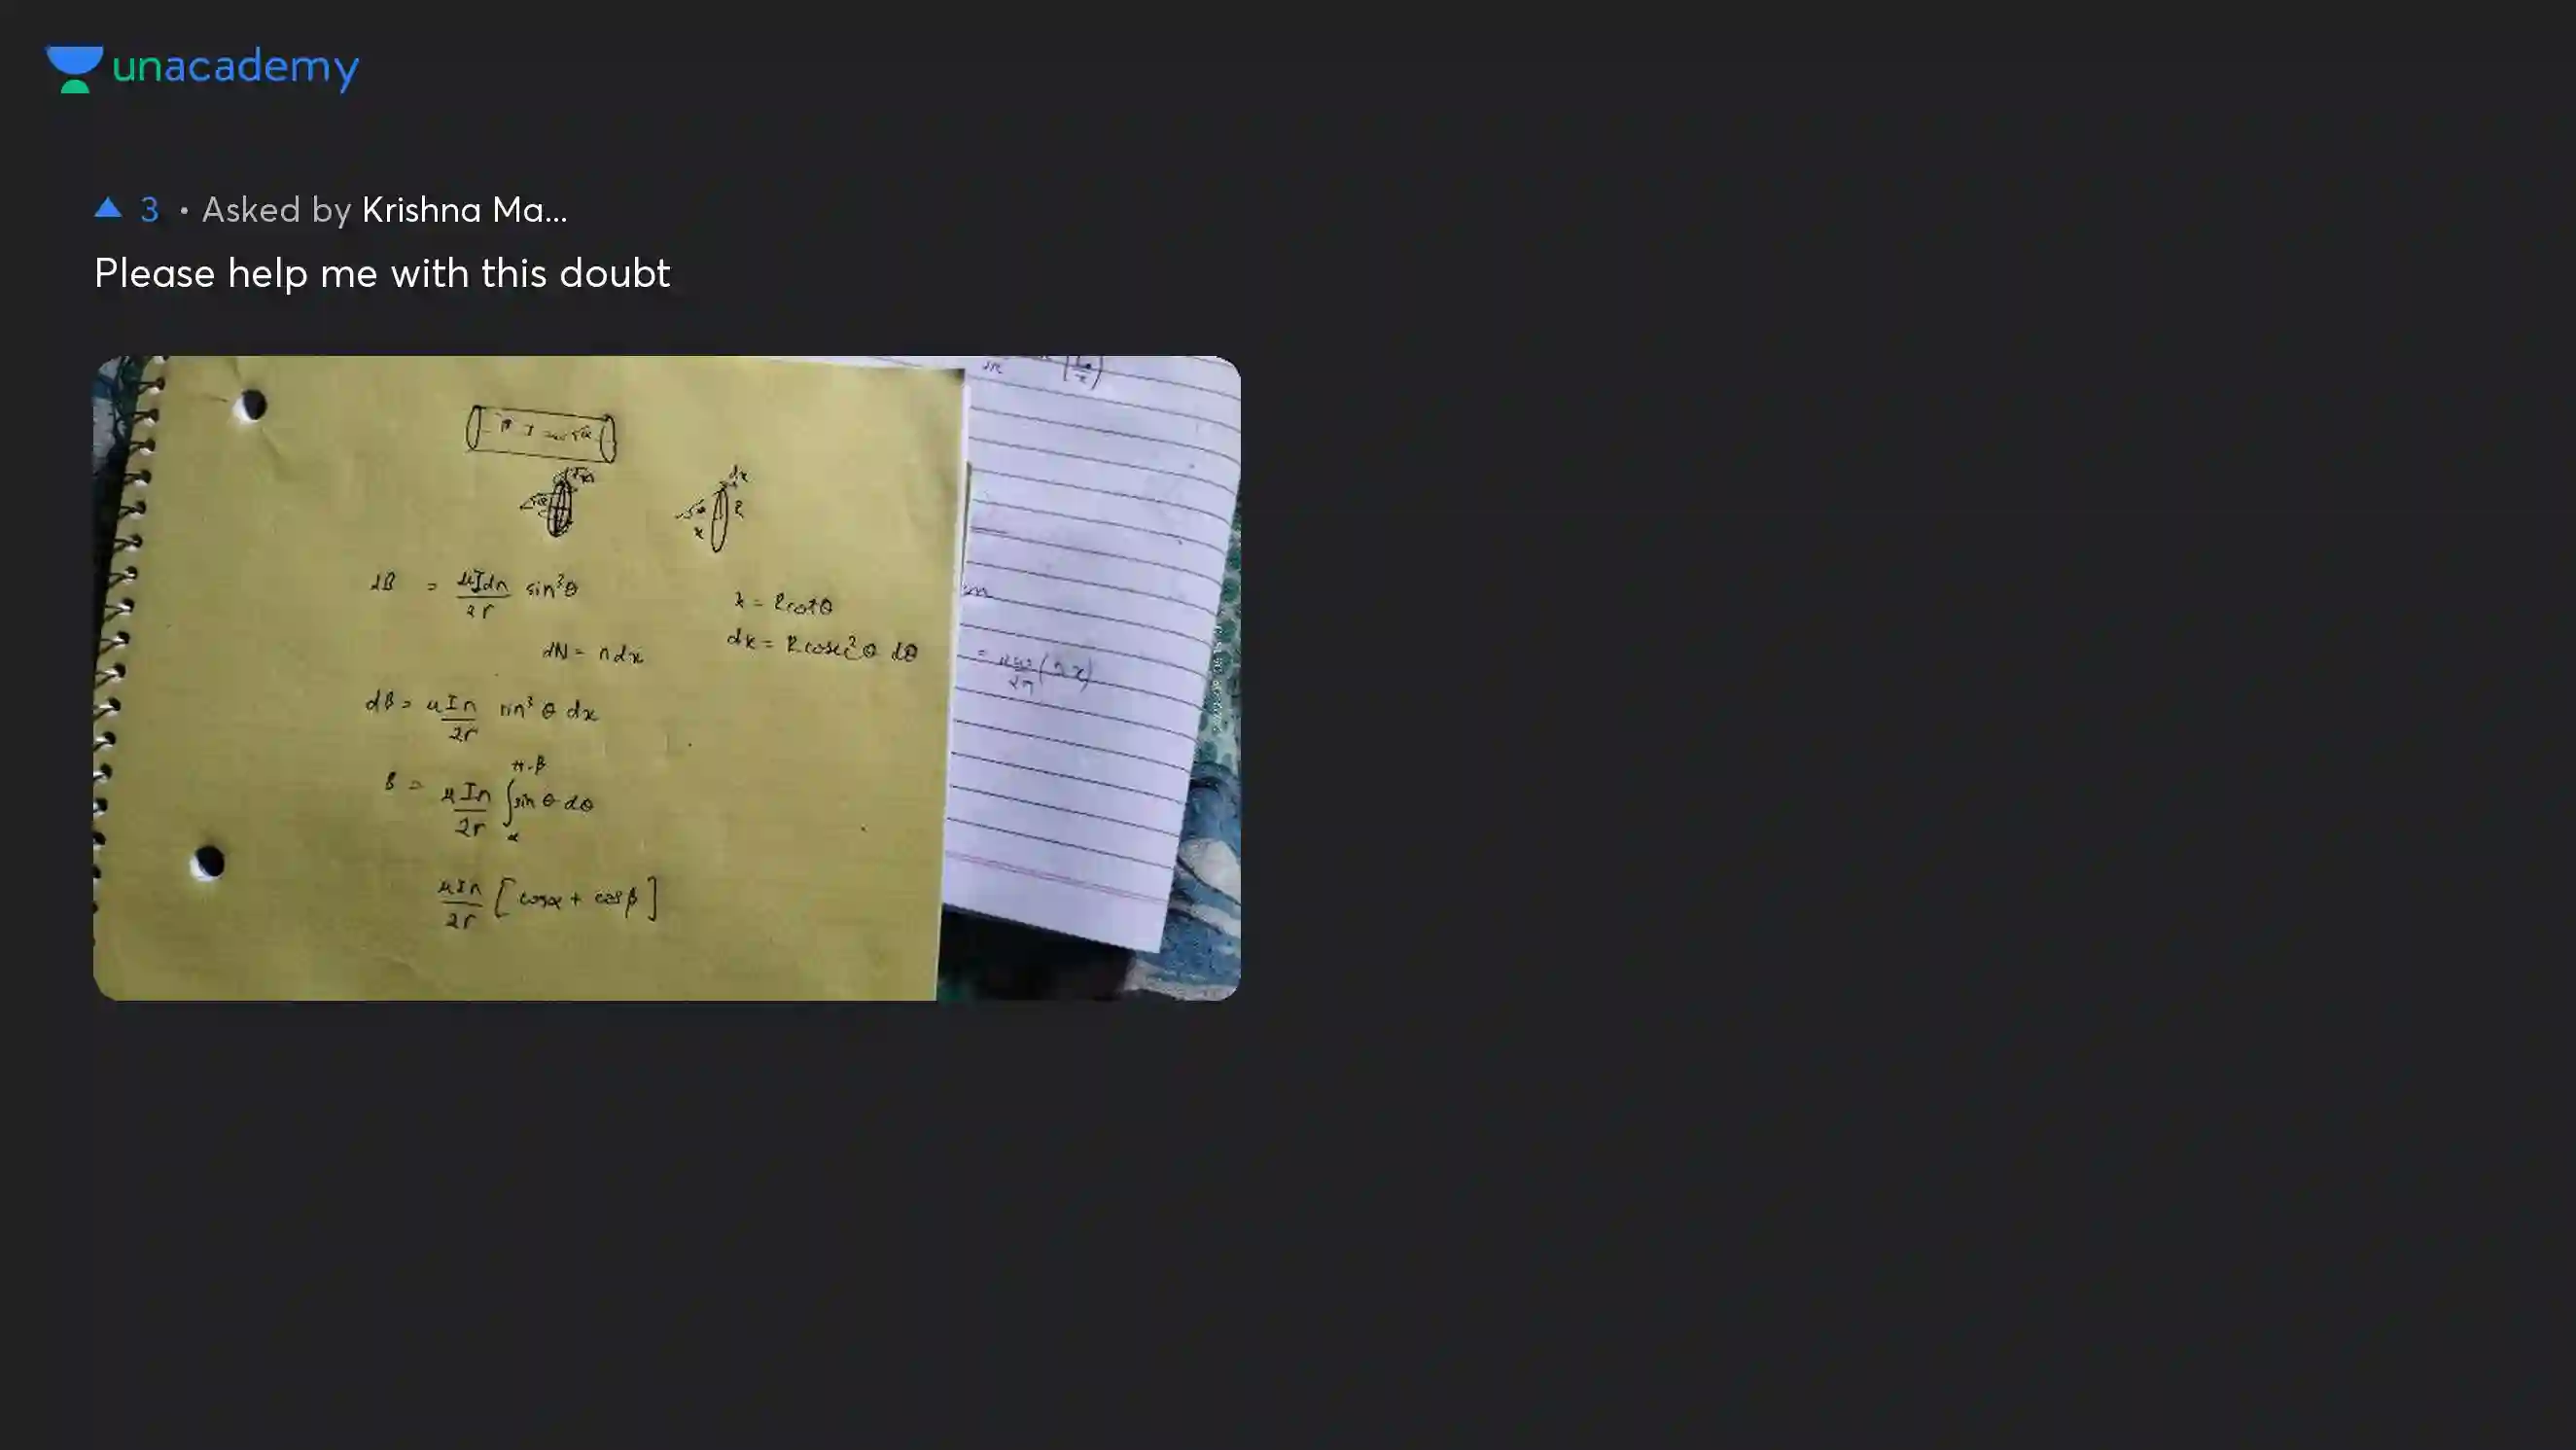 unacademy
3 • Asked by Krishna Ma...
Please help me with this doubt
dx
R
x
dB = μIdn/2r sin³θ
x = Rcotθ
dN = ndx
dx = Rcosec²θ dθ
dB = μIn/2r sin³θ dx
B = μIn/2r ∫ sinθ dθ
π-β
α
μIn/2r [cosα + cosβ]